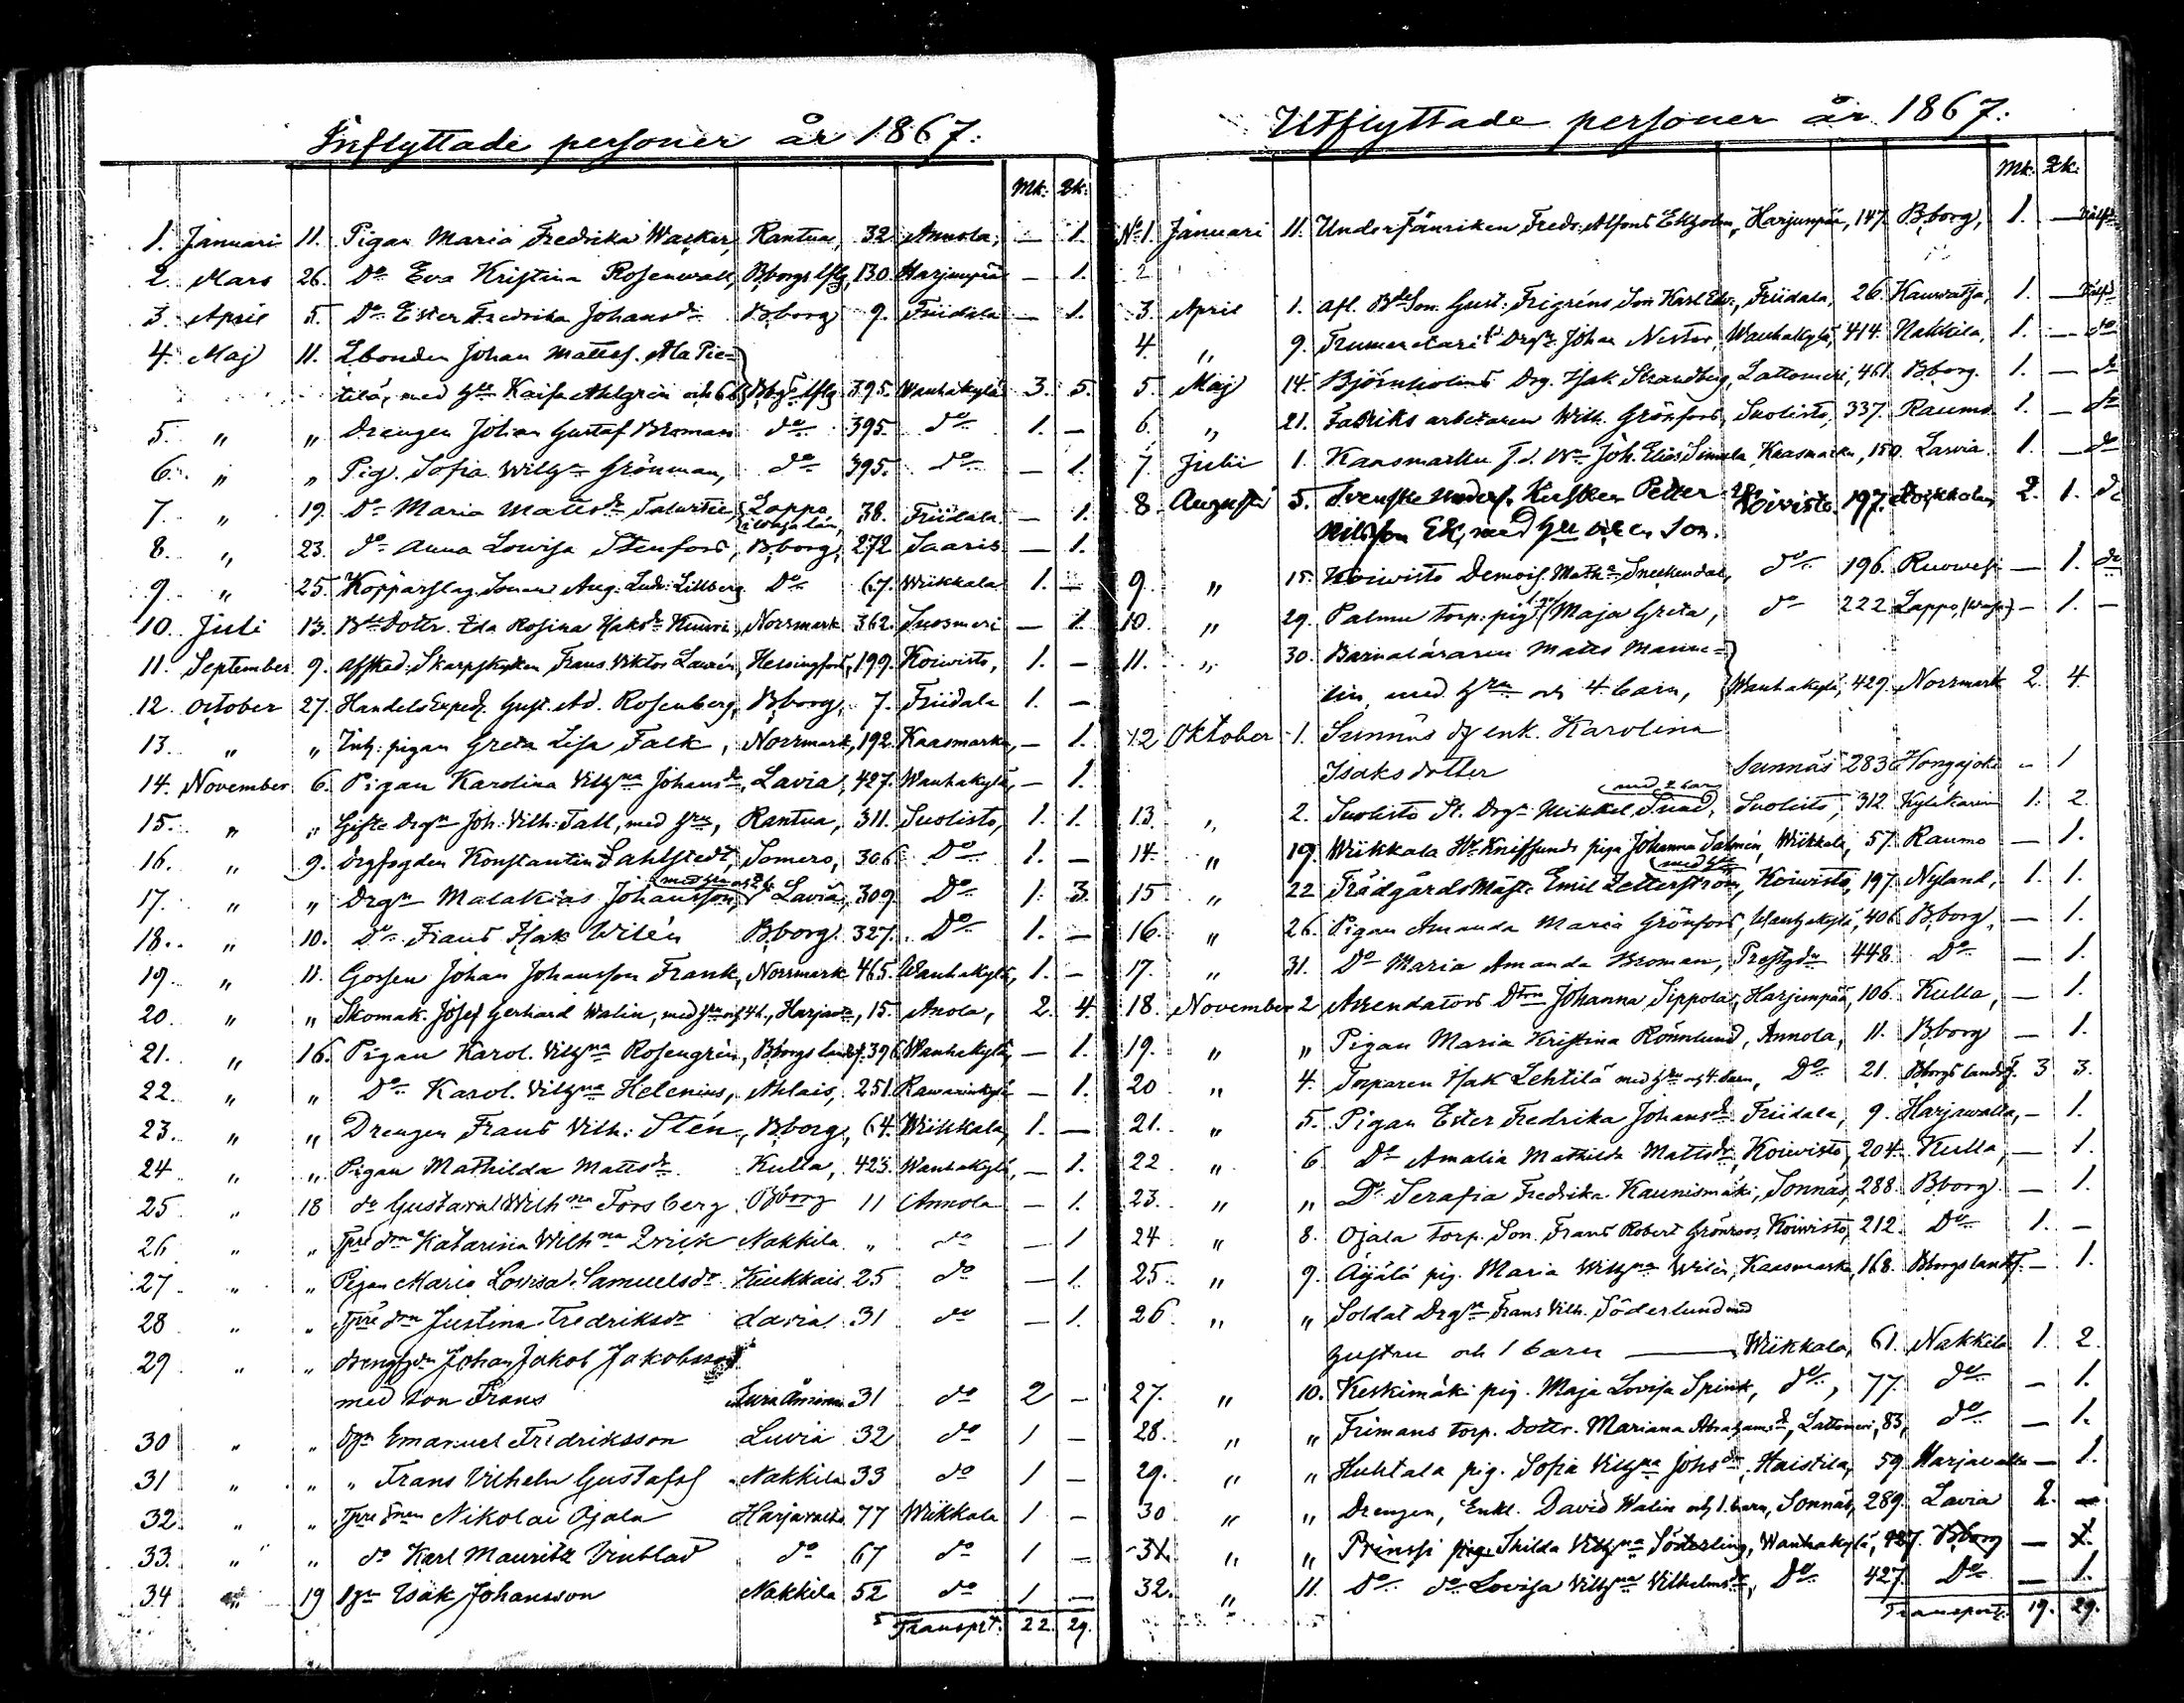 Inflyttade personer år 1867.
Mk. Qk.
1. Januari 11. Pigan Maria Fredrika Wacker, Rantua, 32 Annola, — 1.
2. Mars 26. Do Eva Kristina Rosenwall, Bborgs lfg, 130 Harjunpää — 1.
3. April 5. Do Ester Fredrika Johansdr Bborg 9. Friidala — 1.
4. Maj 11. Lbonden Johan Mattss. Ala Pie-
tilä, med hu Kaisa Ahlgrén och 6 b. Bbgs lfg 395. Wanhakylä 3. 5.
5. " " Drengen Johan Gustaf Broman do 395. do 1. —
6. " " Pig. Sofia Wilhna Grönman, do 395. do — 1.
7. " 19. Do Maria Mattsdr Lappo 38. Friidala — 1.
8. " 23. do Anna Lowisa Stenfors, Bborg, 272 Saaris — 1.
9. " 25. Kopparslag. Sonen Aug. Ludv. Lillberg Do 67. Wiikkala 1. —
10. Juli 13. Bde Dottr. Eda Rosina Isaksdr Norrmark 362. Suosmeri — 1.
11. September 9. Afsked. Skarpskytten Frans Viktor Laurén, Helsingfors, 199. Koiwisto, 1. —
12. October 27. Handels Exped. Gust. Ad. Rosenberg, Bborg, 7. Friidala 1. —
13. " " Inh. pigan Greta Lisa Falk, Norrmark, 192. Kaasmarku, — 1.
14. November 6. Pigan Karolina Vilhna Johansdr, Lavia, 427. Wanhakylä, — 1.
15. " " Gifte Drgn Joh. Vilh. Tall, med hu, Rantua, 311. Suolisto, 1. 1.
16. " 9. Drgfogden Konstantin Sahlstedt, Somero, 306 Do 1. —
med hu och 2 b.
17. " " Drgn Malakias Johansson, Lavia, 309. Do 1. 3.
18. " 10. Do Frans Isak Wilén Bborg. 327. Do 1. —
19. " 11. Gossen Johan Johansson Frank, Norrmark 465. Wanhakylä, 1. —
20. " " Skomak. Josef Gerhard Walin, med hu och 4 b., Harjavta, 15. Anola, 2. 4.
21. " 16. Pigan Karol. Vilhna Rosengrén, Bborgs landsf. 396 Wanhakylä, — 1.
22. " " Do Karol. Vilhna Helenius, Ahlais, 251. Rawaninkylä — 1.
23. " " Drengen Frans Vilh. Stén, Bborg, 64. Wiikkala, 1. —
24 " " Pigan Mathilda Mattsdr Kulla, 423. Wanhakylä, — 1.
25 " 18 do Gustava Wilhna Forsberg Bborg 11 Annola — 1.
26 " " Tpredrn Katarina Wilhna Qvick Nakkila " do — 1
27 " " Pigan Maria Lovisa Samuelsdr Kiukkais 25 do — 1.
28 " " Tpredrn Justina Fredriksdr Lavia 31 do — 1.
29 " " Johan Jakob Jakobsson
med son Frans 31 do 2 —
30 " " Dgn Emanuel Fredriksson Luvia 32 do 1 —
31 " " " Frans Vilhelm Gustafss Nakkila 33 do 1 —
32. " " Tpre snen Nikolai Ojala Harjavalta 77 Wiikkala 1 —
33. " " do Karl Mauritz Vinblad do 67 do 1 —
34 " 19 Dgn Isak Johansson Nakkila 52 do 1 —
Transpt. 22. 29.
Utflyttade personer år 1867.
Mk. Qk.
No 1. Januari 11. Underfänriken Fredr. Alfons Ekholm, Harjunpää, 147. Bborg, 1. —
2
3. April 1. Afl. Bde Son Gust. Frigréns Son Karl Edv., Friidala, 26. Kauvatsa, 1. —
4. " 9. Drgn Johan Nestor, Wanhakylä, 414. Nakkila, 1. — do
5. Maj 14. Björnholms Drg. Isak Strandberg, Lattomeri, 461. Bborg. 1. — do
6. " 21. Fabriks arbetaren Wilh. Grönfors, Suolisto, 337. Raumo 1. — do
7. Julii 1. Kaasmarku Joh. Elias Simula, Kaasmarku, 150. Lavia. 1. — do
8. Augusti 5. Svenske Petter Koivisto. 197. Stockholm, 2. 1. do
Nilsson Ek, med hu och en Son.
9. " 15. Koiwisto Demois. Matha Sneckendal, do 196. Ruowesi — 1. do
10. " 29. Palmu torp. pig. Maja Greta, do 222. Lappo, (Wasa) — 1. —
11. " 30. Barnaläraren Matts Manne-
lin, med hru och 4 barn, Wanhakylä, 429. Norrmark 2 4.
12 Oktober 1. Sunnäs dy enk. Karolina
Isaksdotter Sunnäs 283 Hongajoki — 1
med 2 barn
13. " 2. Suolisto St. Drgn Mikkel Suolisto, 312. Kyläkarvia 1. 2.
14. " 19. Wiikkala pigan Johanna Salmén, Wiikkala, 57. Raumo — 1.
med hu
15 " 22 Trädgårds Mäst. Emil Zetterström, Koiwisto, 197. Nyland, 1. 1.
16. " 26. Pigan Amanda Maria Grönfors, Wanhakylä, 406. Bborg, — 1.
17. " 31. Do Maria Amanda Broman, Prestgdn 448. Do — 1.
18. November 2 Arrendators Dtrn Johanna Sippola, Harjunpää, 106. Kulla, — 1.
19. " " Pigan Maria Kristina Rönnlund, Annola, 11. Bborg — 1.
20 " 4. Torparen Isak Lehtilä med hu och 4 barn, Do 21. Bborgs landsf. 3 3.
21. " 5. Pigan Ester Fredrika Johansdr Friidala, 9. Harjawalta, — 1.
22 " 6 Do Amalia Mathilda Mattsdr, Koiwisto, 204. Kulla, — 1.
23. " " Do Serafia Fredrika Kaunismäki, Sonnäs, 288. Bborg. — 1.
24 " 8. Ojala torp. Son Frans Robert Grönroos, Koiwisto, 212. Do 1. —
25. " 9. Äijälä pig. Maria Wilhna Wilén, Kaasmarku, 168. Bborgs landsf. — 1.
26 " " Soldat Drgn Frans Vilh. Söderlund med
hustru och 1 barn — Wiikkala, 61. Nakkila 1. 2.
27. " 10. Keskimäki pig. Maja Lovisa Spink, do, 77. do — 1.
28. " " Frimans torp. Dottr. Mariana Abrahamsdr, Lattomeri, 83, do — 1.
29. " " Huhtala pig. Sofia Vilhna Johsdr, Haistila, 59 Harjavalta — 1.
30 " " Drengen, Enkl. David Walin och 1 barn, Sonnäs, 289. Lavia 2. —
31. " " Prinssi pig. Thilda Vilhna Söderling, Wanhakylä, 427. Bborg — 1.
32. " 11. Do do Lovisa Vilhna Vilhelmsdr, Do 427. Do — 1.
Transport. 19. 29.